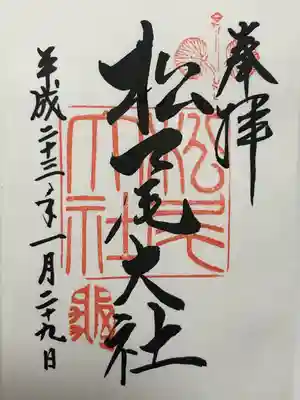 奉拝
松尾大社
松尾大社
平成二十三年一月二十九日